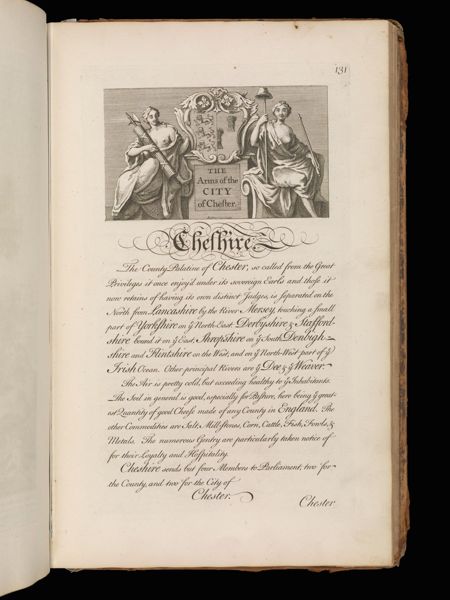 131
THE
Arms of the
CITY
of Chester.
Cheshire
The County Palatine of Chester, so called from the Great
Privileges it once enjoy'd under its sovereign Earls and those it
now retains of having its own distinct Judges, is separated on the
North from Lancashire by the River Mersey, touching a small
part of Yorkshire on ỹ North-East. Derbyshire & Stafford-
shire bound it on ỹ East, Shropshire on ỹ South, Denbigh-
shire and Flintshire on the West, and on ỹ North-West part of ỹ
Irish Ocean. Other principal Rivers are ỹ Dee & ỹ Weaver.
The Air is pretty cold, but exceeding healthy to ỹ Inhabitants.
The Soil in general is good, especially for Pasture, here being ỹ great-
est Quantity of good Cheese made of any County in England. The
other Commodities are Salt, Mill-stones, Corn, Cattle, Fish, Fowls, &
Metals. The numerous Gentry are particularly taken notice of
for their Loyalty and Hospitality.
Cheshire sends but four Members to Parliament, two for
the County, and two for the City of
Chester.
Chester